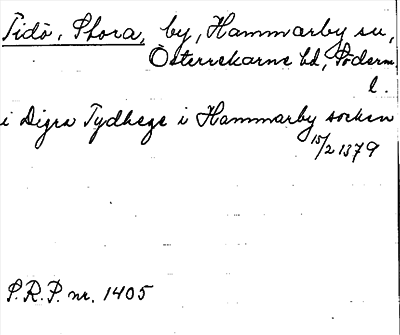 Tidö, Stora, by, Hammarby sn,
Österrekarne hd, Söderm.
l.
i Digra Tydhege i Hammarby socken
15/2 1379
S.R.P. nr. 1405